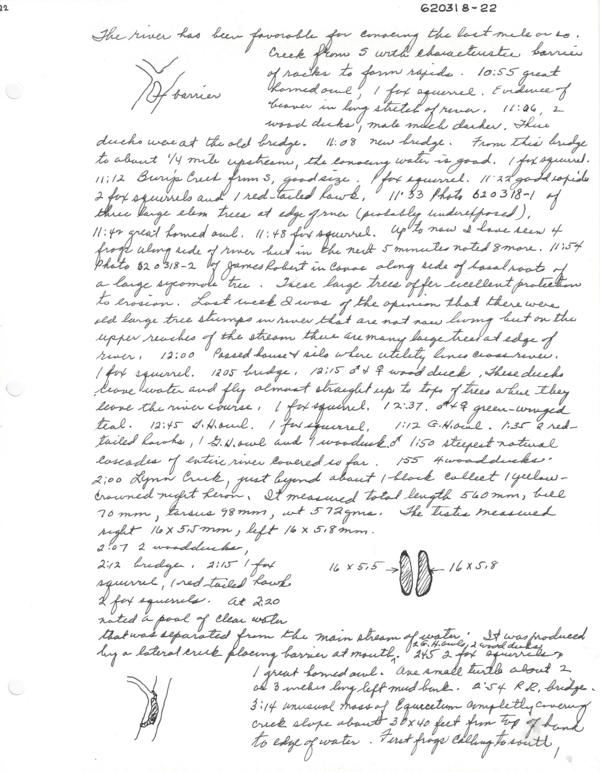 22
620318-22
The river has been favorable for canoeing the last mile or so.
Creek from S with characteristic barrier
of rocks to form rapids. 10:55 great
horned owl, 1 fox squirrel. Evidence of
barrier
beaver in long stretch of river. 11:06, 2
wood ducks, male much darker. These
ducks were at the old bridge. 11:08 new bridge. From this bridge
to about 1/4 mile upstream, the canoeing water is good. 1 fox squirrel.
11:12 Creek from S, good size. 1 fox squirrel. 11:22 good rapids
2 fox squirrels and 1 red-tailed hawk. 11:33 Photo 620318-1 of
three large elm trees at edge of river (probably underexposed),
11:42 great horned owl. 11:48 fox squirrel. Up to now I have seen 4
frogs along side of river but in the next 5 minutes noted 8 more. 11:54
Photo 620318-2 of James Robert in canoe along side of basal roots of
a large sycamore tree. These large trees offer excellent protection
to erosion. Last week I was of the opinion that there were
old large tree stumps in river that are not now living but on the
upper reaches of the stream there are many large trees at edge of
river. 12:00 Passed house & silo where utility lines cross river.
1 fox squirrel. 1205 bridge. 12:15 ♂ & ♀ wood duck. These ducks
leave water and fly almost straight up to tops of trees where they
leave the river course. 1 fox squirrel. 12:37. ♂ & ♀ green-winged
teal. 12:45 G.H.owl. 1 fox squirrel. 1:12 G.H.owl. 1:35 2 red-
tailed hawks, 1 G.H.owl and 1 woodduck ♂ 1:50 steepest natural
cascades of entire river covered so far. 155 4 wood ducks.
2:00 Lynn Creek, just beyond about 1-block collect 1 yellow-
crowned night heron. It measured total length 560 mm, bill
70 mm, tarsus 98 mm, wt 572 gms. The testis measured
right 16 x 5.5 mm, left 16 x 5.8 mm.
2:07 2 woodducks,
2:12 bridge. 2:15 1 fox
squirrel, 1 red-tailed hawk
16 x 5.5
16 x 5.8
2 fox squirrels. At 2:20
noted a pool of clear water
that was separated from the main stream of water. It was produced
2 G.H.owls, 2 wood ducks
by a lateral creek placing barrier at mouth. 245 2 fox squirrels &
1 great horned owl. One small turtle about 2
or 3 inches long left mud bank. 2:54 R.R. bridge.
3:14 unusual mass of Equisetum completely covering
creek slope about 30 x 40 feet from top of bank
to edge of water. First frogs calling to south,